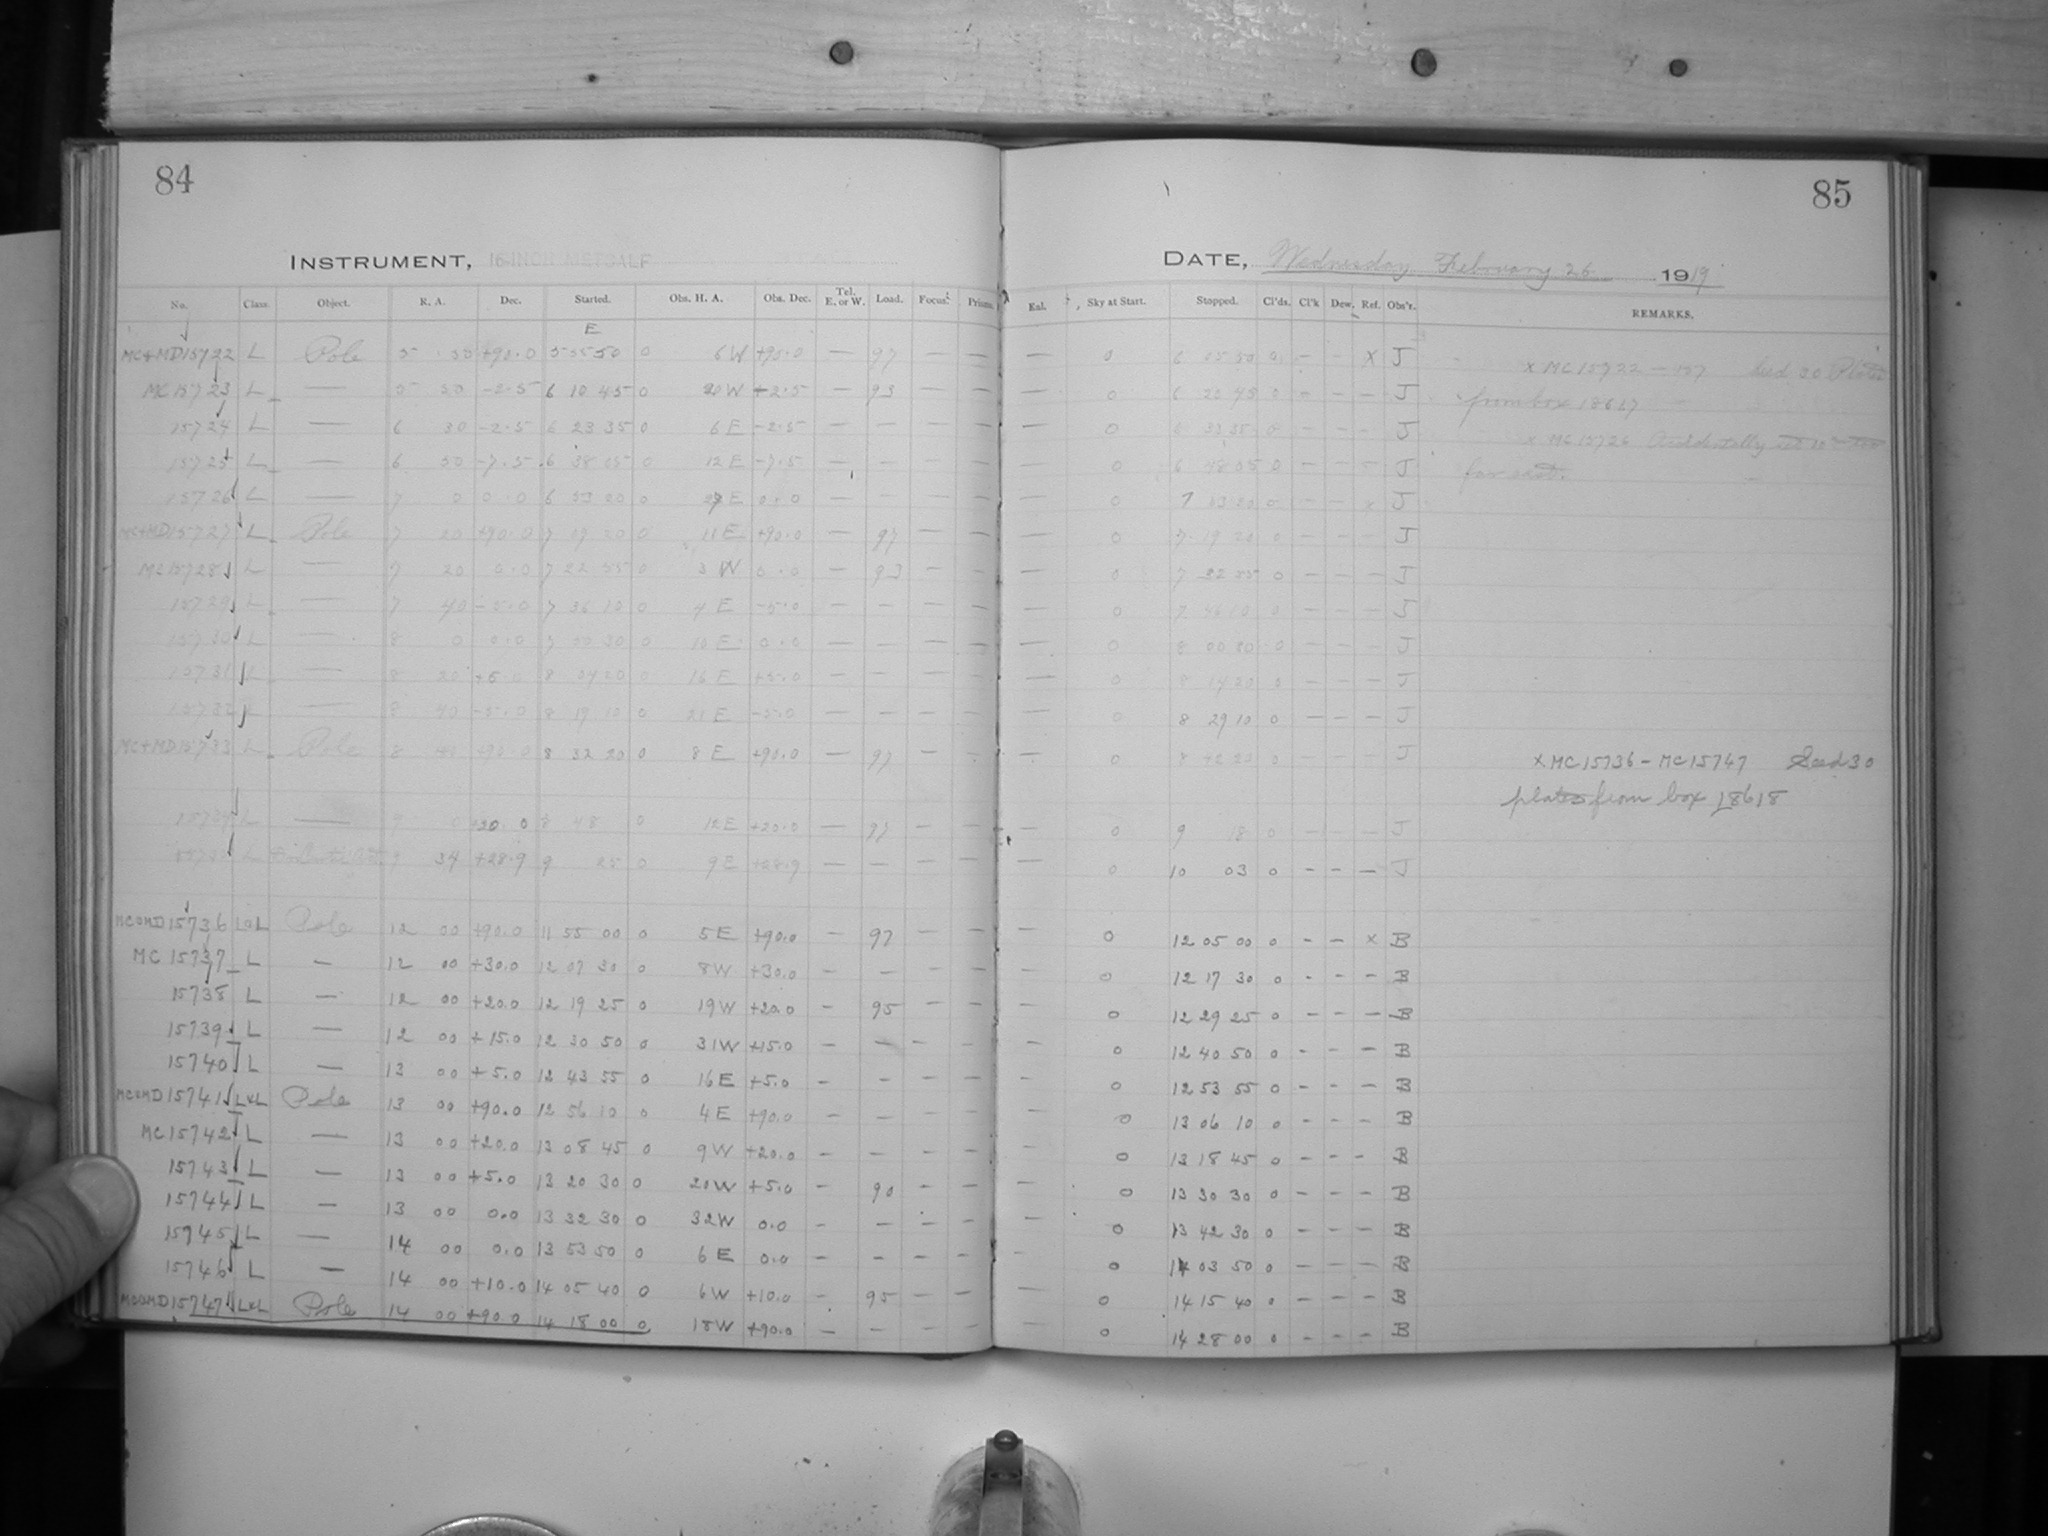 84
85
INSTRUMENT, 16-INCH METCALF
DATE, Wednesday February 26 1919
No. Class. Object. R. A. Dec. Started. Obs. H. A. Obs. Dec. Tel. E. or W. Load. Focus. Prisms. Enl. Sky at Start. Stopped. Cl'ds. Cl'k Dew. Ref. Obs'r. REMARKS.
E
MC+MD15722 L Pole 5 50 +90.0 5 55 50 0 6W +90.0 — 97 — — — 0 6 05 50 0 — — X J x MC15722 — Seed 30 Plates
MC15723 L — 5 50 -2.5 6 10 45 0 20W +2.5 — 93 — — — 0 6 20 45 0 — — — J from box 18617
15724 L — 6 30 -2.5 6 23 35 0 6E -2.5 — — — — — 0 6 33 35 0 — — — J x MC15726 Accidentally
15725 L — 6 50 -7.5 6 38 05 0 12E -7.5 — — — — — 0 6 48 05 0 — — — J far east.
15726 L — 7 0 0.0 6 53 20 0 E 0.0 — — — — — 0 7 03 20 0 — — x J
MC+MD15727 L Pole 7 20 +90.0 7 09 20 0 11E +90.0 — 97 — — — 0 7 19 20 0 — — — J
MC15728 L — 7 20 0.0 7 22 55 0 3 W 0.0 — 93 — — — 0 7 32 55 0 — — — J
15729 L — 7 40 -5.0 7 36 10 0 4 E -5.0 — — — — — 0 7 46 10 0 — — — J
15730 L — 8 0 0.0 7 50 30 0 10 E 0.0 — — — — — 0 8 00 30 0 — — — J
15731 L — 8 20 +5.0 8 04 20 0 16 E +5.0 — — — — — 0 8 14 20 0 — — — J
15732 L — 8 40 -5.0 8 19 10 0 21 E -5.0 — — — — — 0 8 29 10 0 — — — J
MC+MD15733 L Pole 8 +90.0 8 32 20 0 8 E +90.0 — 97 — — — 0 8 42 20 0 — — — J x MC15736 - MC15747 Seed 30
plates from box 18618
15734 L — 9 0 +20.0 8 48 0 12E +20.0 — 97 — — — 0 9 18 0 — — — J
L 9 34 +28.9 9 25 0 9E +28.9 — — — — — 0 10 03 0 — — — J
MC&MD15736 L&L Pole 12 00 +90.0 11 55 00 0 5E +90.0 — 97 — — — 0 12 05 00 0 — — x B
MC 15737 L — 12 00 +30.0 12 07 30 0 8W +30.0 — — — — — 0 12 17 30 0 — — — B
15738 L — 12 00 +20.0 12 19 25 0 19W +20.0 — 95 — — — 0 12 29 25 0 — — — B
15739 L — 12 00 +15.0 12 30 50 0 31W +15.0 — — — — — 0 12 40 50 0 — — — B
15740 L — 13 00 +5.0 12 43 55 0 16E +5.0 — — — — — 0 12 53 55 0 — — — B
MC&MD15741 L&L Pole 13 00 +90.0 12 56 10 0 4E +90.0 — — — — — 0 13 06 10 0 — — — B
MC15742 L — 13 00 +20.0 13 08 45 0 9W +20.0 — — — — — 0 13 18 45 0 — — — B
15743 L — 13 00 +5.0 13 20 30 0 20W +5.0 — 90 — — — 0 13 30 30 0 — — — B
15744 L — 13 00 0.0 13 32 30 0 32W 0.0 — — — — — 0 13 42 30 0 — — — B
15745 L — 14 00 0.0 13 53 50 0 6E 0.0 — — — — — 0 14 03 50 0 — — — B
15746 L — 14 00 +10.0 14 05 40 0 6W +10.0 — 95 — — — 0 14 15 40 0 — — — B
MC&MD15747 L&L Pole 14 00 +90.0 14 18 00 0 18W +90.0 — — — — — 0 14 28 00 0 — — — B